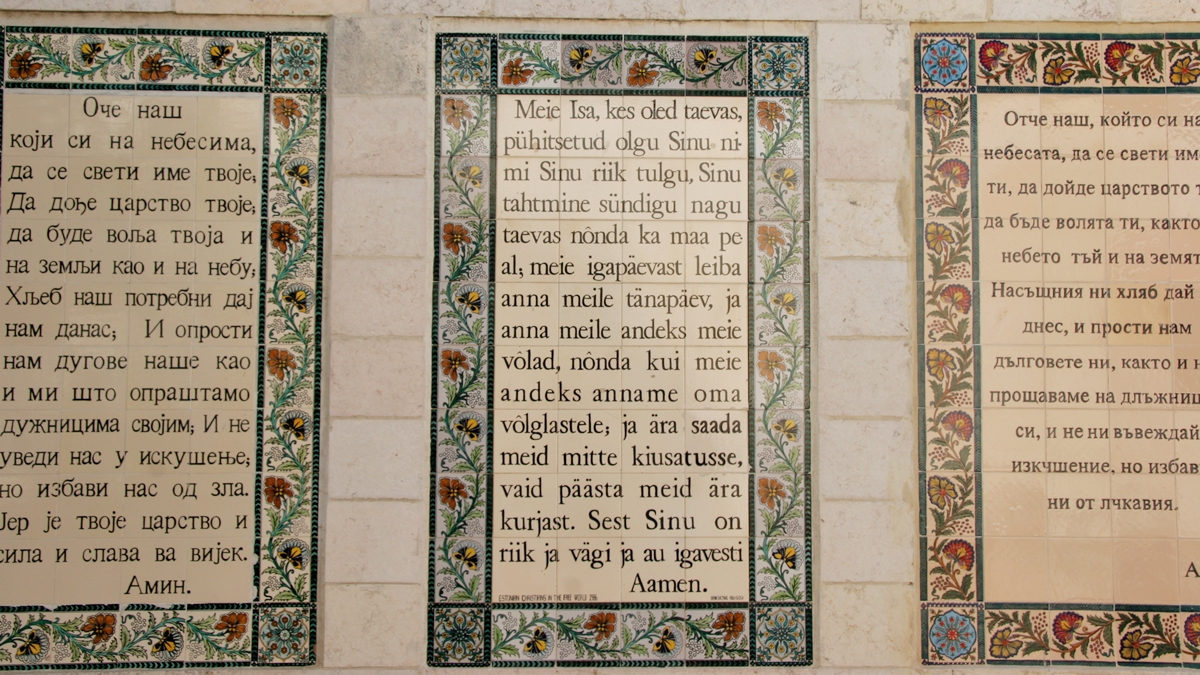 Оче наш
који си на небесима,
да се свети име твоје;
Да дође царство твоје;
да буде воља твоја и
на земљи као и на небу;
Хљеб наш потребни дај
нам данас; И опрости
нам дугове наше као
и ми што опраштамо
дужницима својим; И не
уведи нас у искушење;
но избави нас од зла.
Јер је твоје царство и
сила и слава ва вијек.
Амин.
Meie Isa, kes oled taevas,
pühitsetud olgu Sinu ni-
mi Sinu riik tulgu, Sinu
tahtmine sündigu nagu
taevas nônda ka maa pe
al; meie igapäevast leiba
anna meile tänapäev, ja
anna meile andeks meie
vôlad, nônda kui meie
andeks anname oma
vôlglastele; ja ära saada
meid mitte kiusatusse,
vaid päästa meid ära
kurjast. Sest Sinu on
riik ja vägi ja au igavesti
Aamen.
ESTONIAN CHRISTIANS IN THE FREE WORLD
Отче наш, който си на
небесата, да се свети им
ти, да дойде царството т
да бъде волята ти, както
небето тъй и на земят
Насъщния ни хляб дай
днес, и прости нам
дълговете ни, както и н
прощаваме на длъжниц
си, и не ни въвеждай
изкчшение, но избав
ни от лчкавия.
А